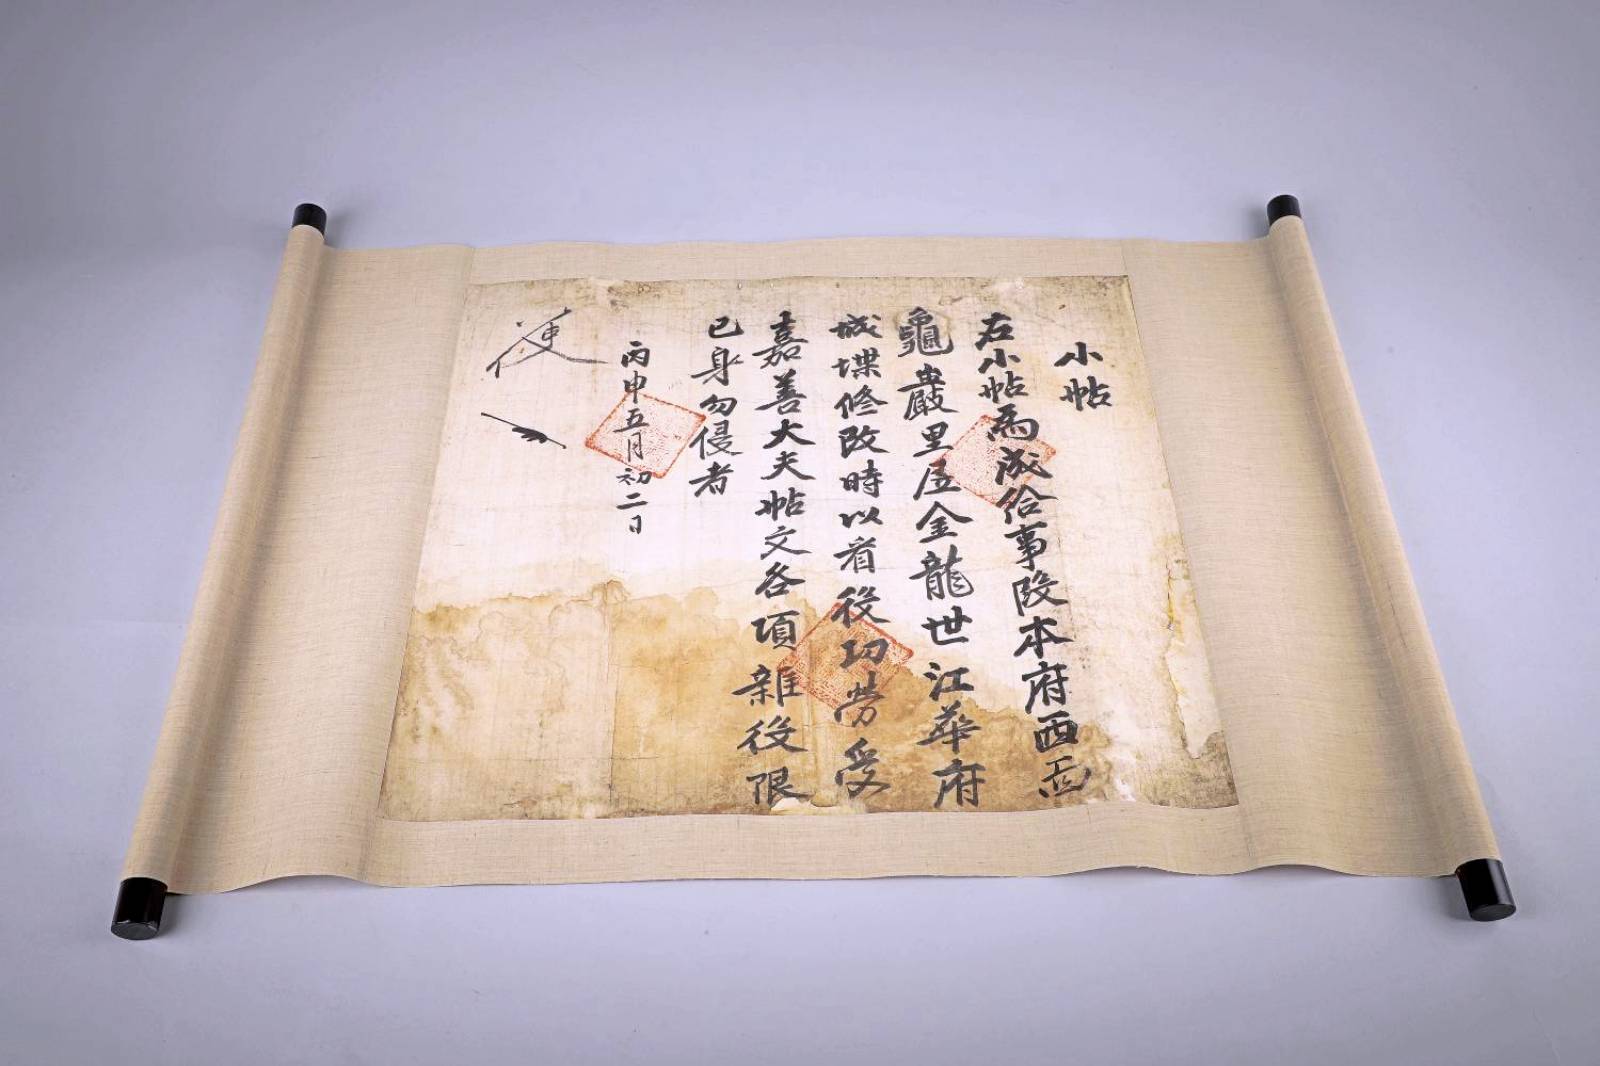 小帖
右小帖為成給事段本府西面
龜巖里居金龍世江華府
城堞修改時以看役功勞受
嘉善大夫帖文各項雜役限
己身勿侵者
丙申五月初二日
使